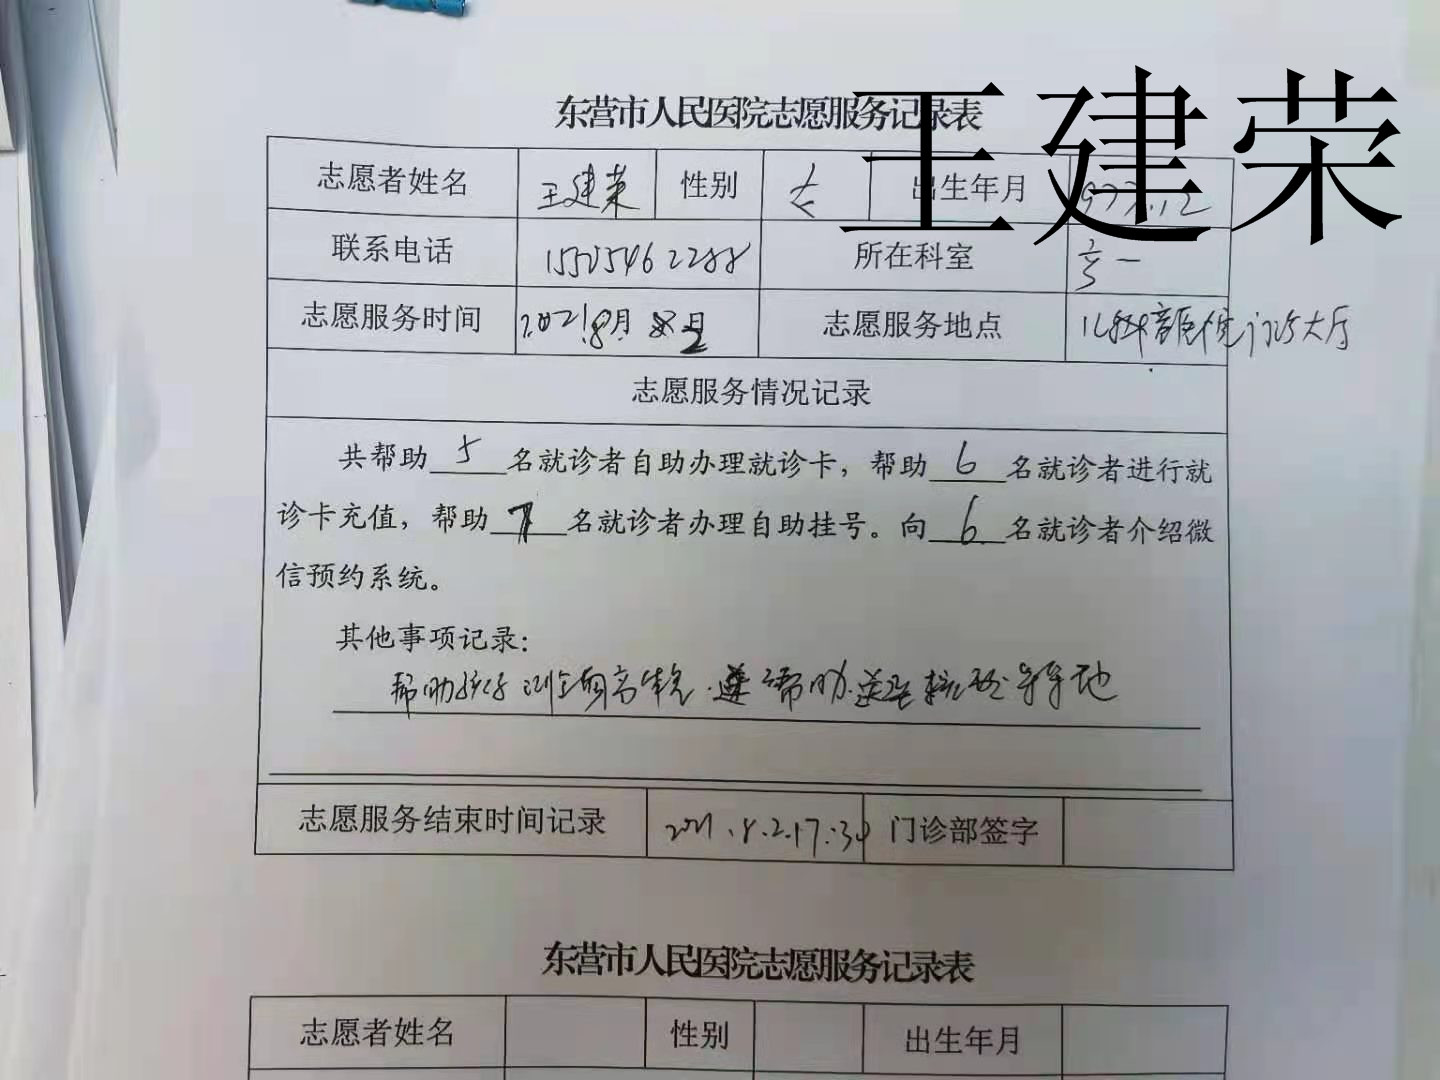 王建荣
东营市人民医院志愿服务记录表
志愿者姓名 王建荣 性别 女 出生年月
联系电话 所在科室
志愿服务时间 2021.8月2 志愿服务地点 门诊大厅
志愿服务情况记录
共帮助 5 名就诊者自助办理就诊卡，帮助 6 名就诊者进行就
诊卡充值，帮助 7 名就诊者办理自助挂号。向 6 名就诊者介绍微
信预约系统。
其他事项记录：
帮助
志愿服务结束时间记录 2021.8.2.17:30 门诊部签字
东营市人民医院志愿服务记录表
志愿者姓名 性别 出生年月